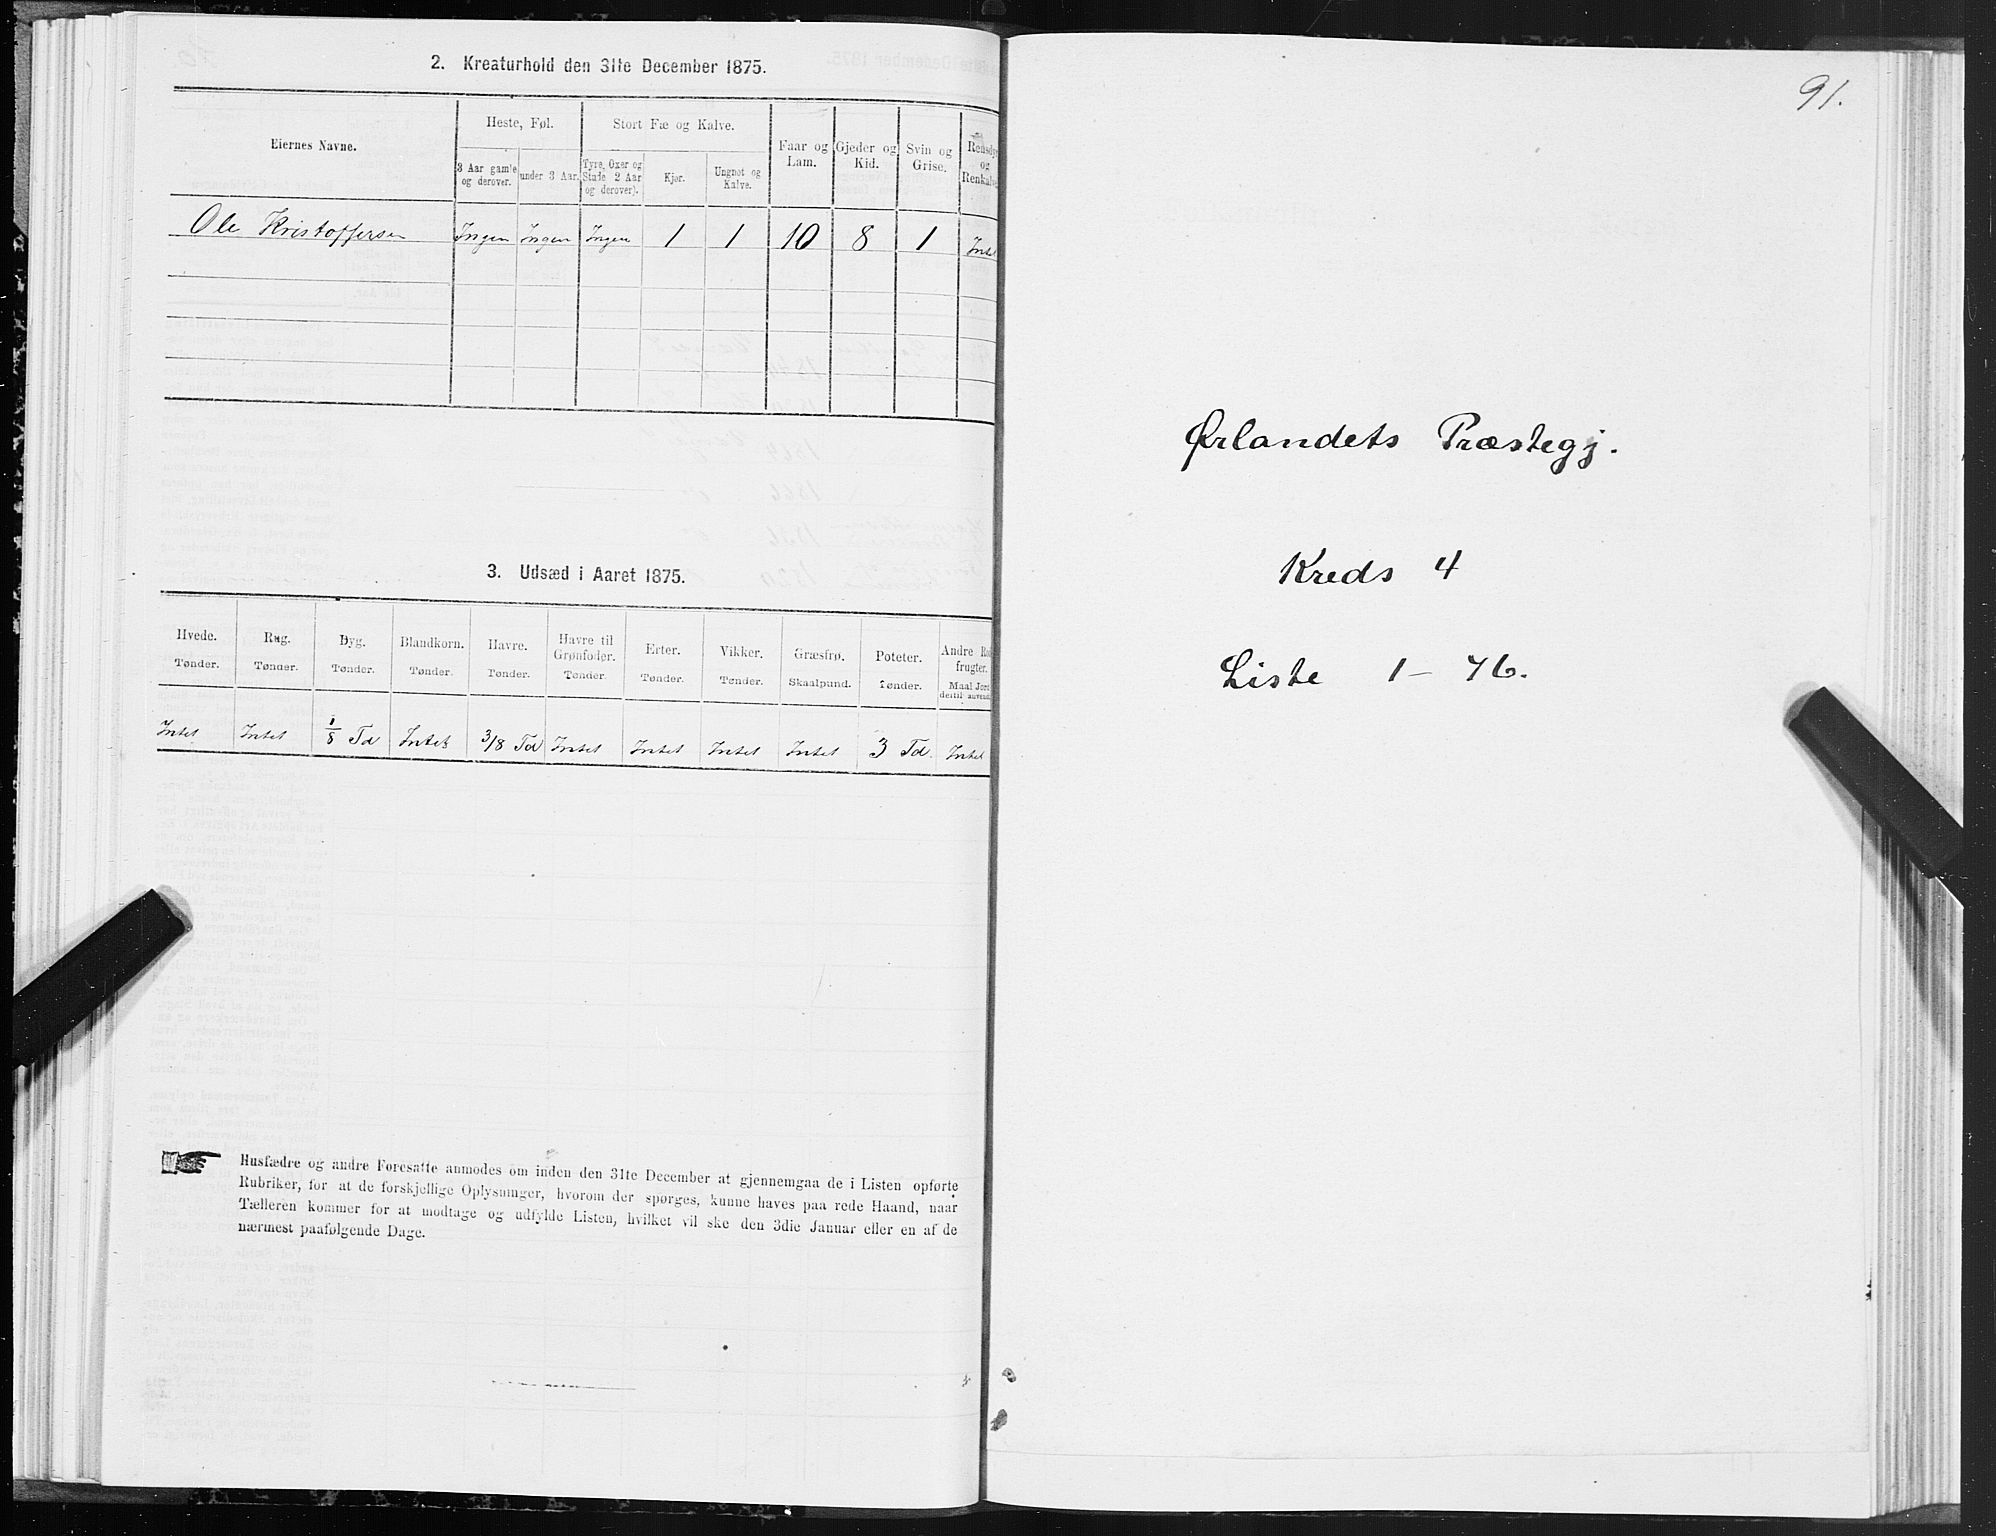 2. Kreaturhold den 31te December 1875.
Eiernes Navne.
Heste, Føl.
Stort Fæ og Kalve.
3 Aar gamle og derover.
under 3 Aar.
Tyre, Oxer og Stude 2 Aar og derover).
Kjør.
Ungnøt og Kalve.
Faar og Lam.
Gjeder og Kid.
Svin og Grise.
Rensdyr og Renkalve
Ole Kristoffersen Ingen Ingen Ingen 1 1 10 8 1 Intet
3. Udsæd i Aaret 1875.
Hvede. Rug. Byg. Blandkorn. Havre. Havre til Grønfoder. Erter. Vikker. Græsfrø. Poteter. Andre Rodfrugter.
Tønder. Tønder. Tønder. Tønder. Tønder. Tønder. Tønder. Tønder. Skaalpund. Tønder. Maal Jord dertil anvendt
Intet Intet 1/8 Td Intet 3/8 Td Intet Intet Intet Intet 3 Td. Intet
Husfædre og andre Foresatte anmodes om inden den 31te December at gjennemgaa de i Listen opførte
Rubriker, for at de forskjellige Oplysninger, hvorom der spørges, kunne haves paa rede Haand, naar
Tælleren kommer for at modtage og udfylde Listen, hvilket vil ske den 3die Januar eller en af de
nærmest paafølgende Dage.
91.
Ørlandets Præstegj.
Kreds 4
Liste 1 - 76.